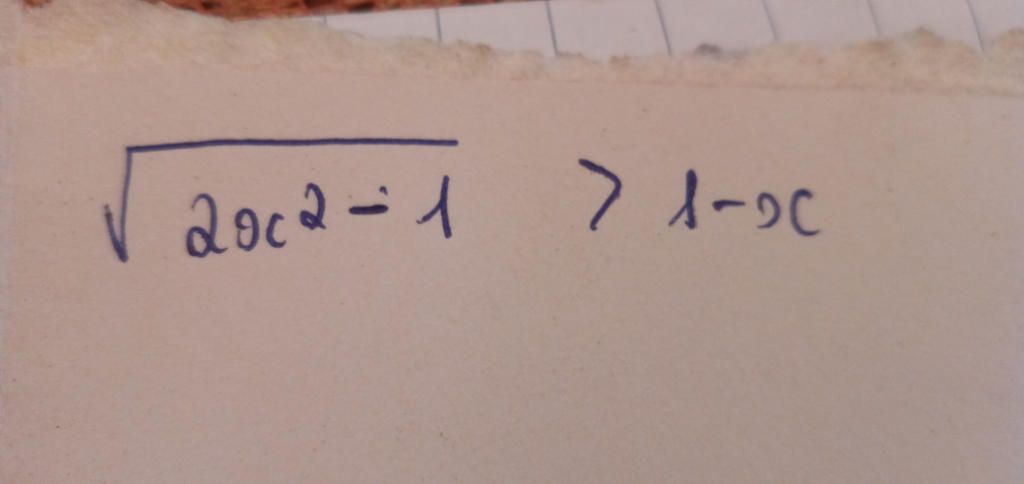 √(2x² - 1) > 1-x